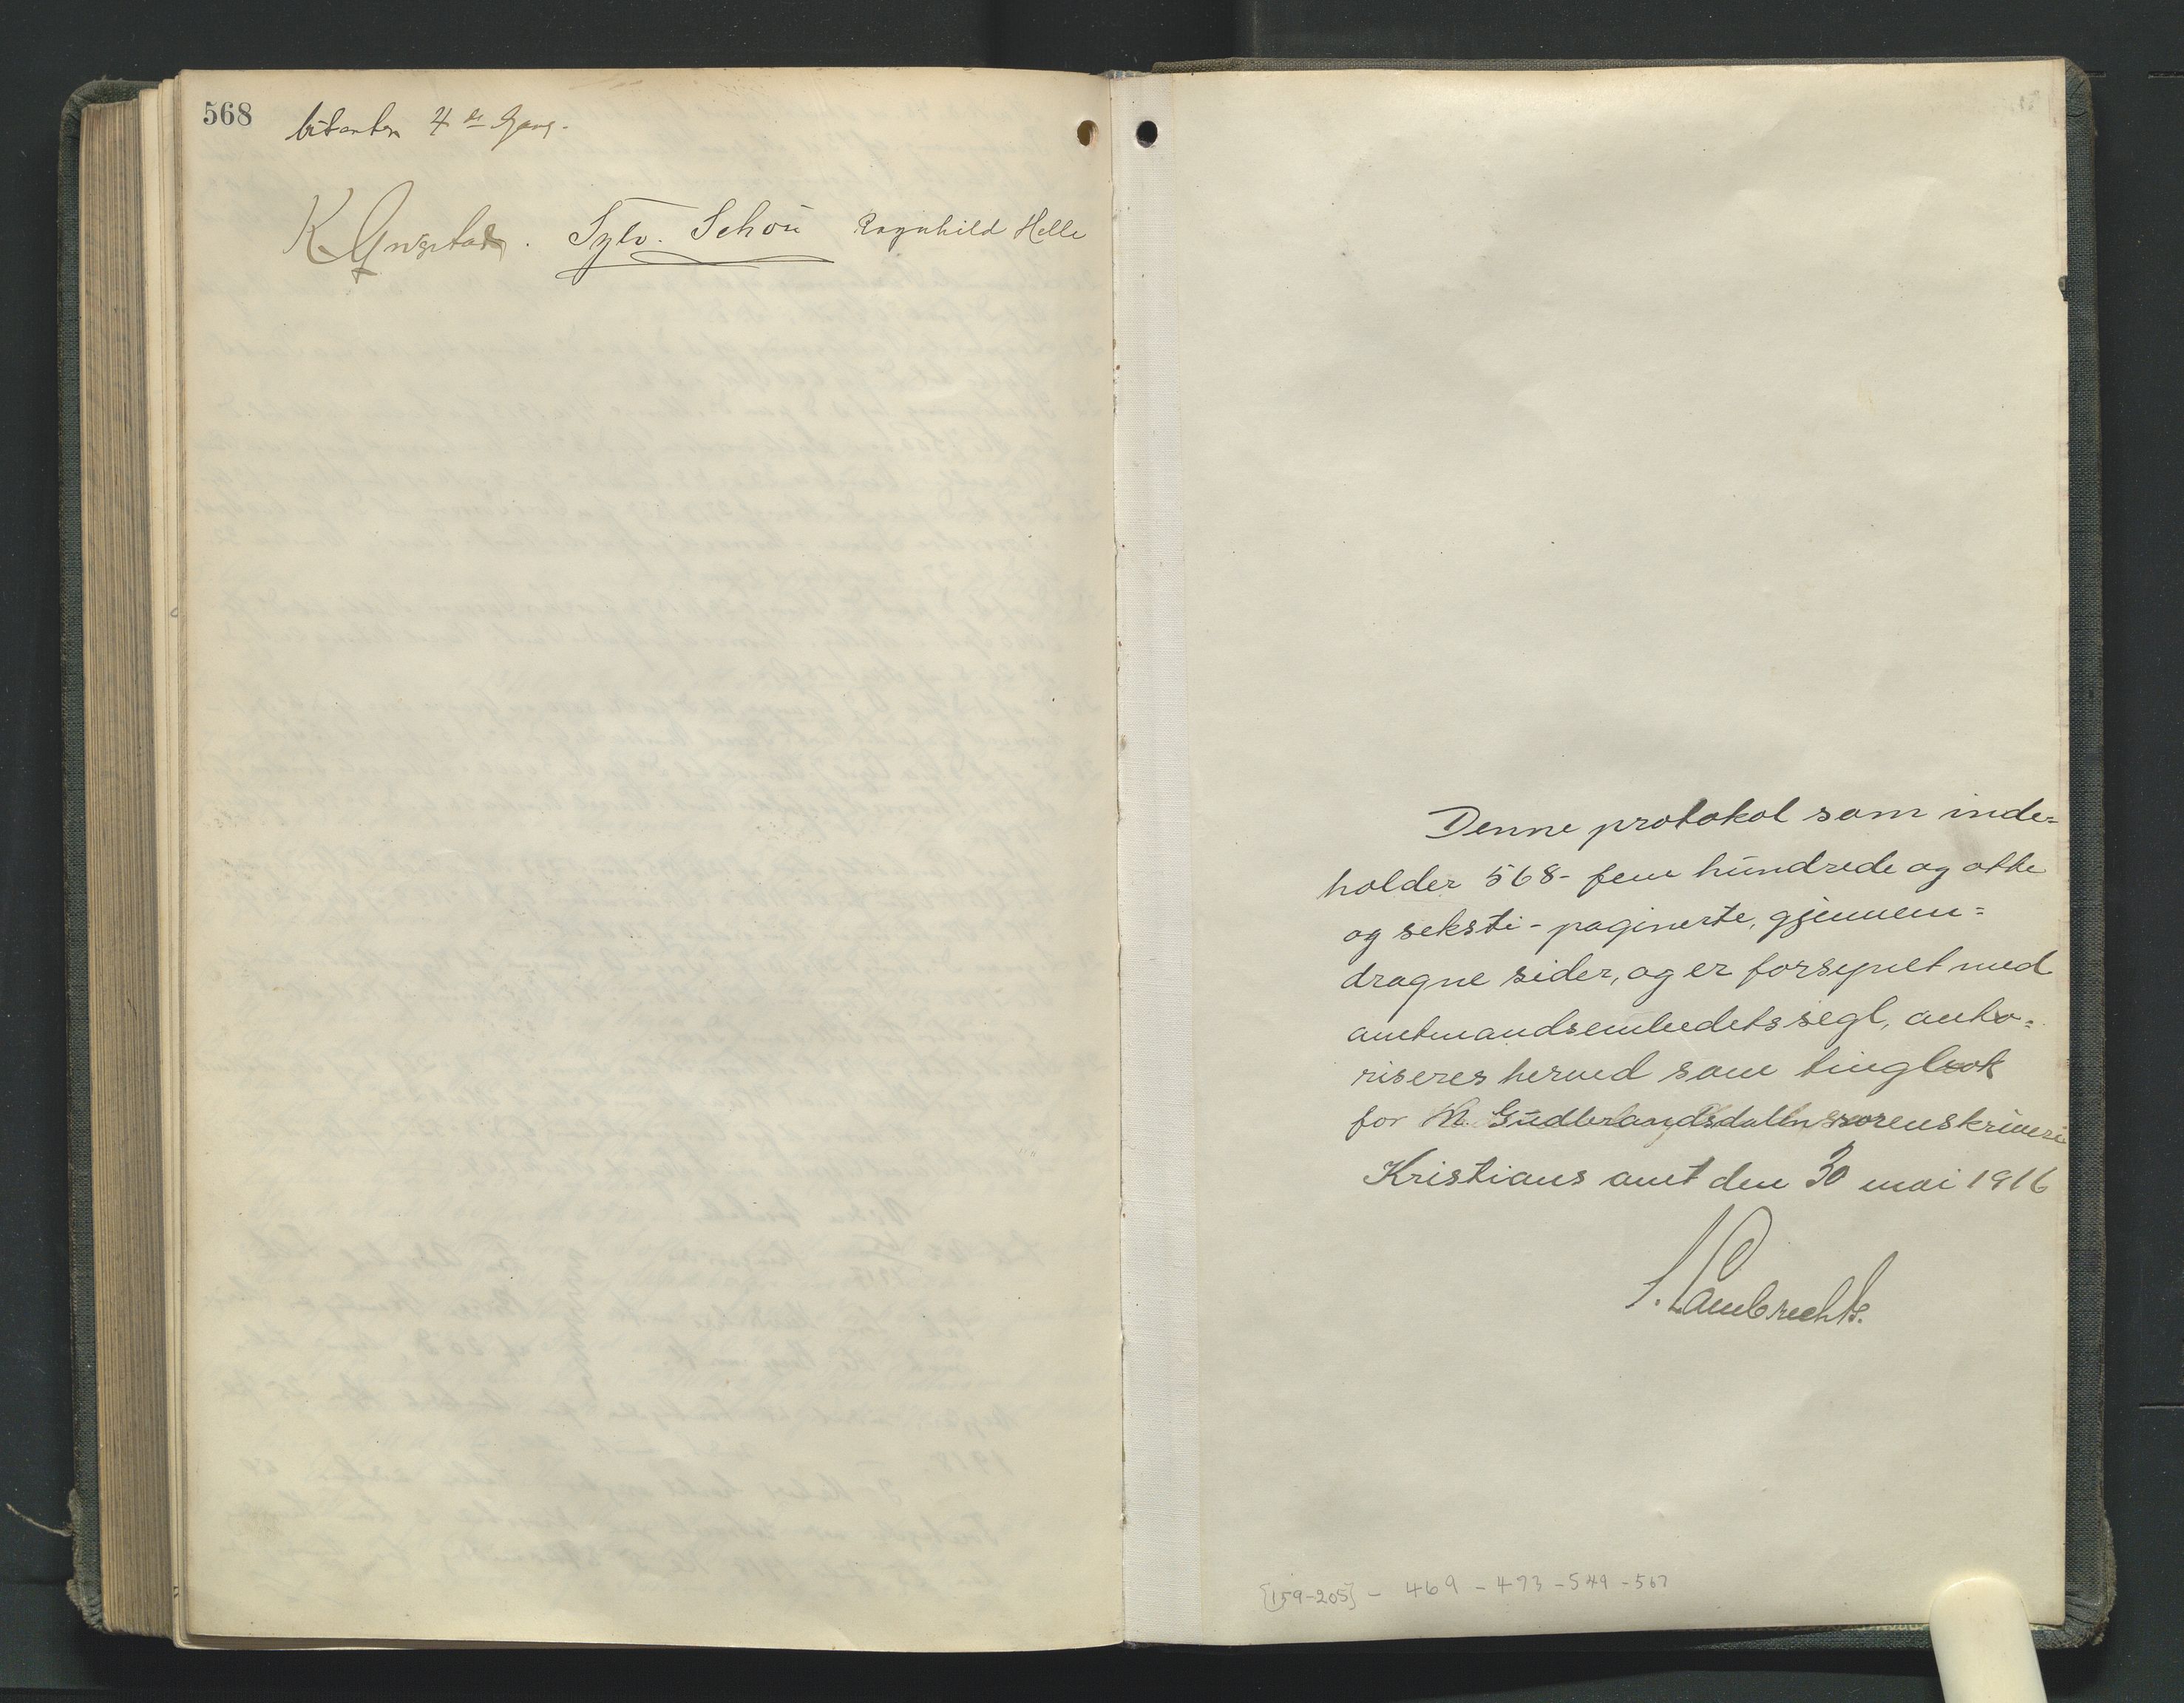 568
4 de Gang.
Sylv. Schou Ragnhild Helle
Denne protokol som inde=
holder 568- fem hundrede og otte
og seksti - paginerte, gjennem=
dragne sider, og er forsynet med
amtmandsembedets segl, auto=
riseres herved som tingbok
for N. Gudbrandsdalen sorenskriveri
Kristians amt den 30 mai 1916
Lambrechts.
[159-205] - 469 - 473 - 549 - 567